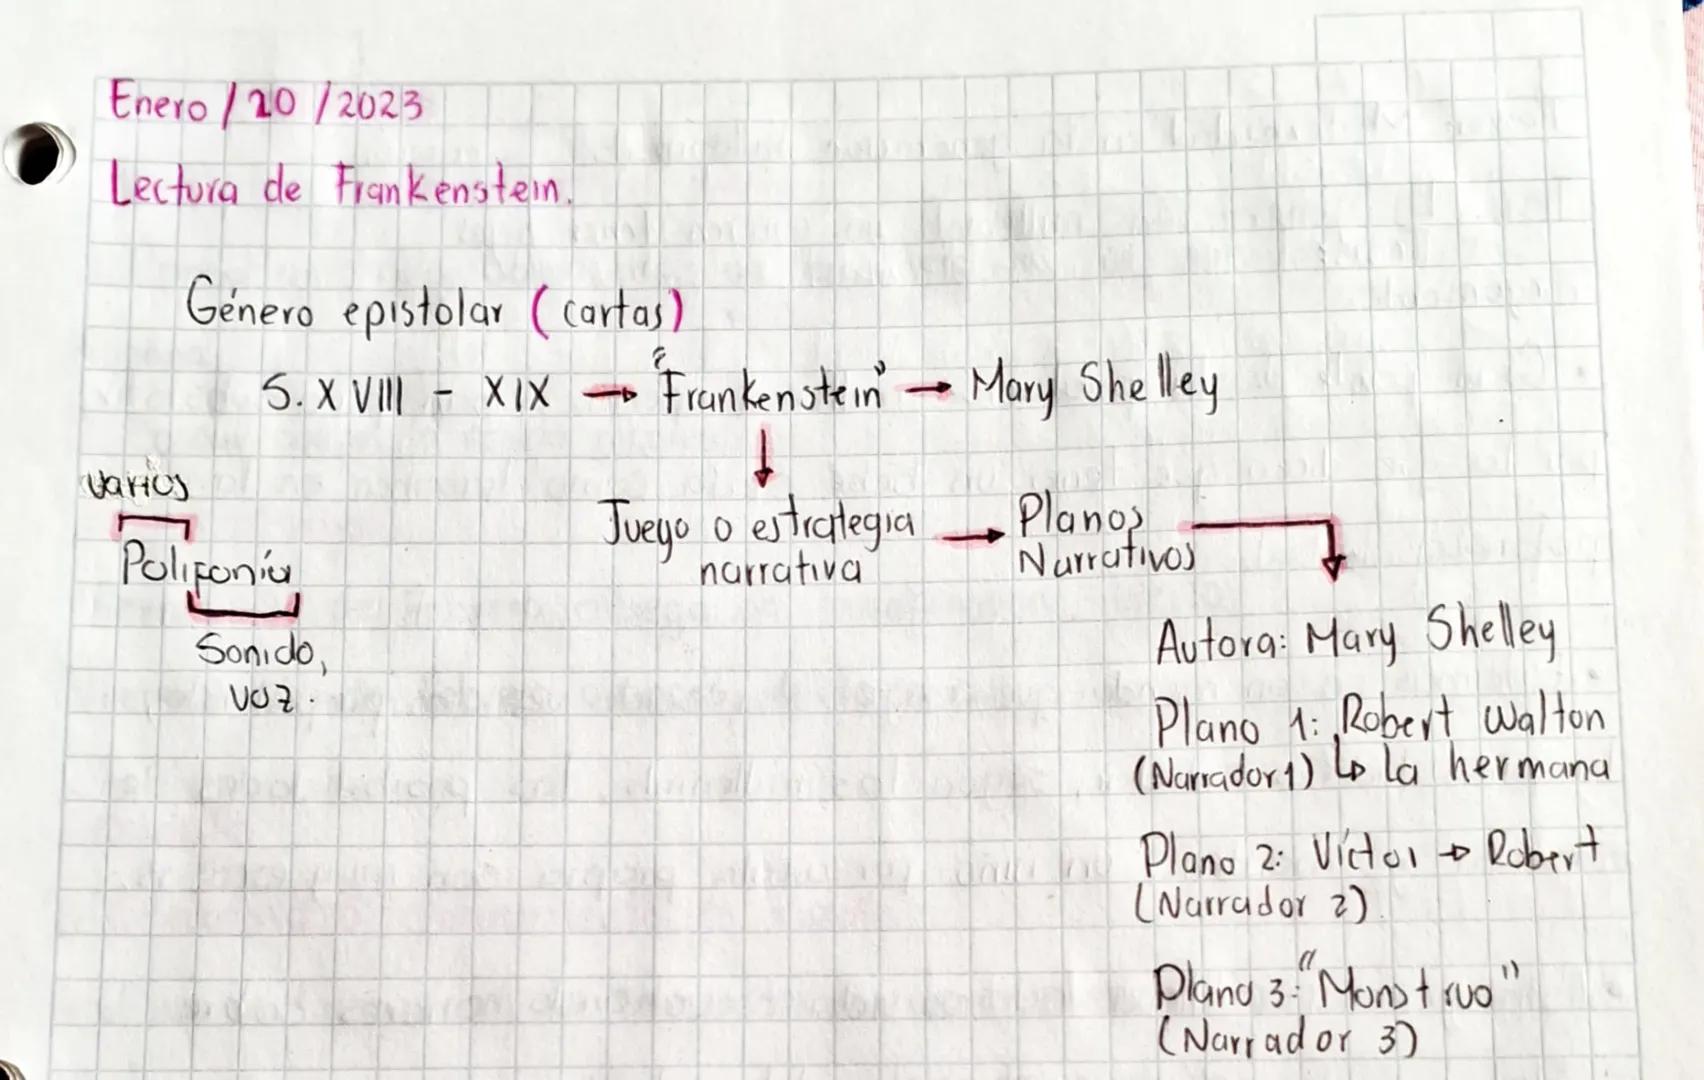 Enero / 20 / 2023
Lectura de Frankenstein.
Género epistolar (cartas)
S. XVIII - XIX → "Frankenstein" → Mary Shelley
↓
Varios
Polifonía
Sonido,
voz.
Juego o estrategia
narrativa
→ Planos
Narrativos
Autora: Mary Shelley
Plano 1: Robert Walton
(Narrador 1) ↳ La hermana
Plano 2: Víctor → Robert
(Narrador 2)
Plano 3: "Monstruo"
(Narrador 3)